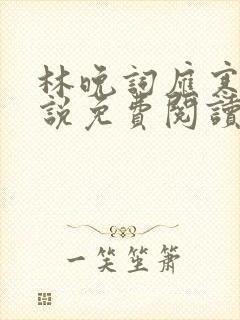 林晚詞雁寒
說免費閱讀
一笑笙簫